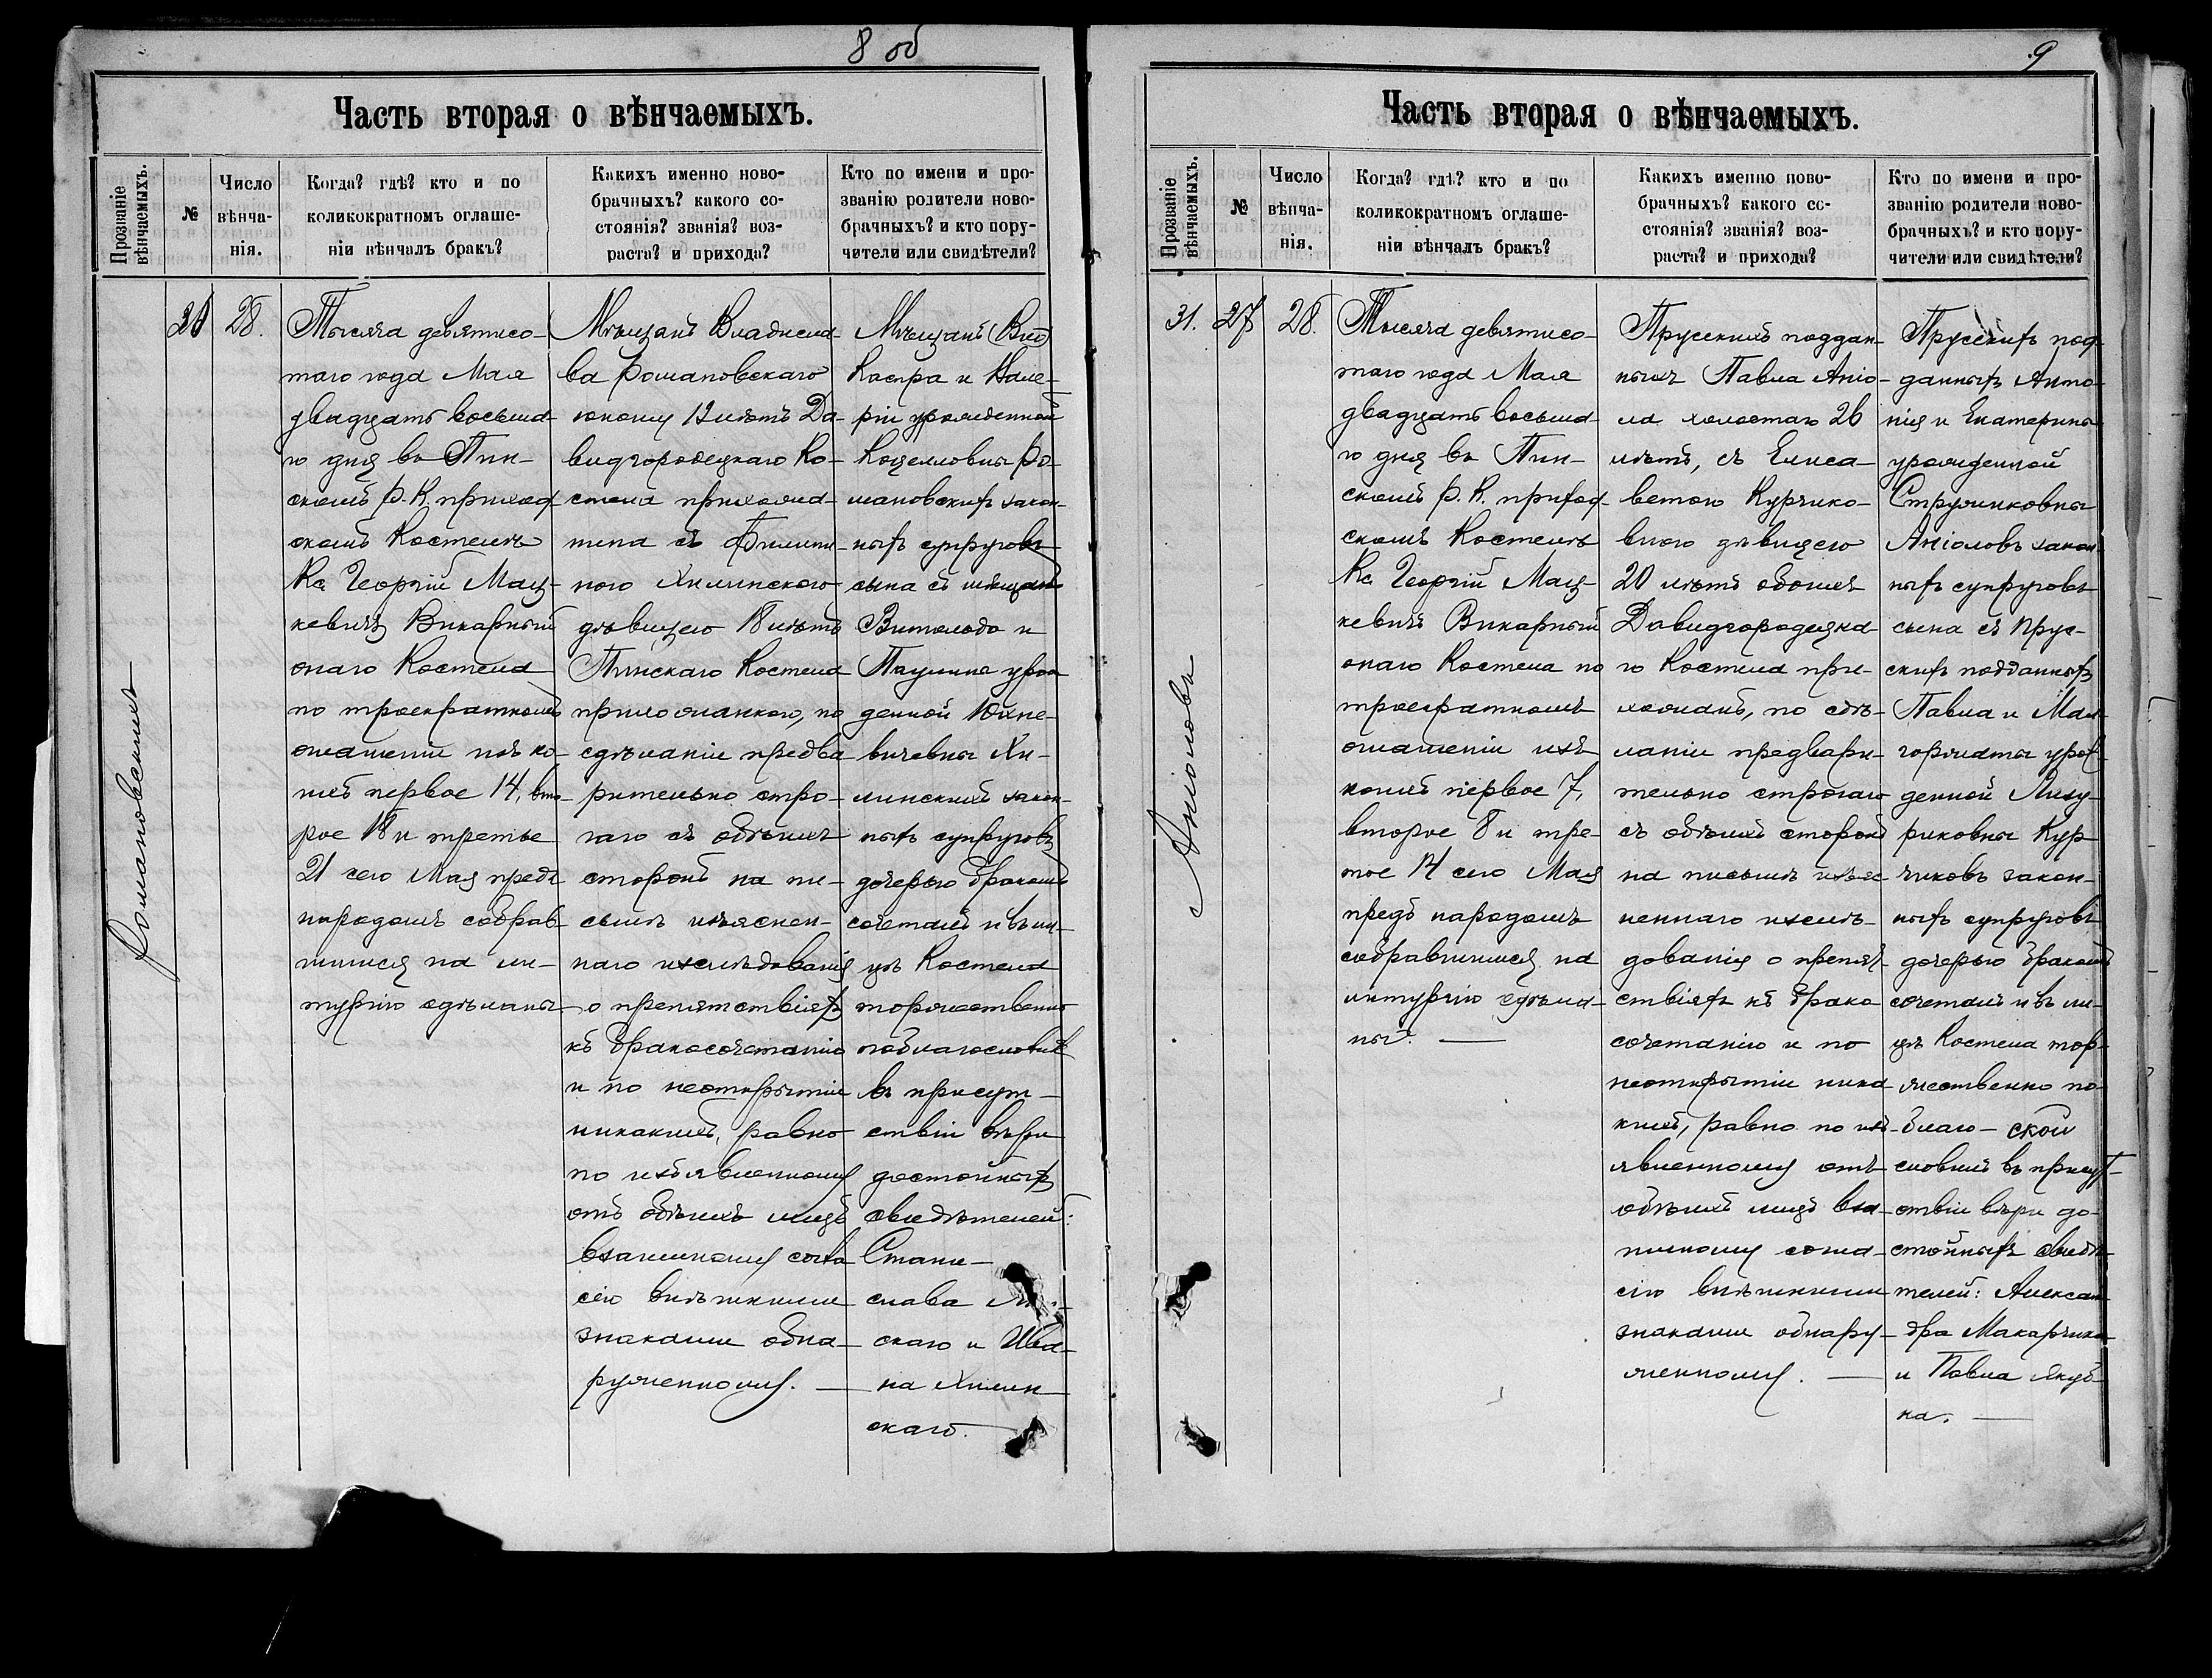 8 об
Часть вторая о вѣнчаемыхъ.
Прозваніе вѣнчаемыхъ.
№
Число вѣнча-нія.
Когда? гдѣ? кто и по
коликократномъ оглаше-
ніи вѣнчалъ бракъ?
Какихъ именно ново-
брачныхъ? какого со-
стоянія? званія? воз-
раста? и прихода?
Кто по имени и про-
званію родители ново-
брачныхъ? и кто пору-
чители или свидѣтели?
Романовскихъ
28.
Тысяча девятисо-
таго года Мая
двадцать восьма-
го дня въ Пин-
скомъ Р. К. приход
скомъ Костелѣ
Кс Георгій Мац-
кевичъ Викарный
онаго Костела
по троекратномъ
оглашеніи изъ ко-
ихъ первое 14, вто-
рое 18 и третье
21 сего Мая предъ
народомъ собрав-
шимися на ли-
тургію сдѣланы
Мѣщанъ Владисла-
ва Романовскаго
юношу лѣтъ Да-
видгородецкаго Ко-
стела прихожа-
нина съ
ною Хилинскою
дѣвицею 18 лѣтъ
Пинскаго Костела
прихожанкою, по
сдѣланіи предва
рительно стро-
гаго съ обѣихъ
сторонъ на пи-
сьмѣ изъяснен-
наго изслѣдованія
о препятствіяхъ
къ бракосочетанію
и по неоткрытіи
никакихъ, равно
по изъявленному
отъ обѣихъ лицъ
взаимному согла
сію внѣшними
знаками обна-
руженному.
Мѣщанъ
Каспра и Вале-
ріи урожденной
Ро-
мановскихъ закон-
ныхъ супруговъ
сына съ мѣщанъ
Витольда и
Паулины урож
денной Юхне-
вичевны Хи-
линскихъ закон-
ныхъ супруговъ
дочерью бракомъ
сочеталъ и въ ли-
цѣ Костела
торжественно
поблагословилъ
въ присут-
ствіи вѣры
достойныхъ
свидѣтелей:
Стани-
слава
скаго и Ива-
на Хилин
скаго.
9
Часть вторая о вѣнчаемыхъ.
Прозваніе вѣнчаемыхъ.
№
Число вѣнча-нія.
Когда? гдѣ? кто и по
коликократномъ оглаше-
ніи вѣнчалъ бракъ?
Какихъ именно ново-
брачныхъ? какого со-
стоянія? званія? воз-
раста? и прихода?
Кто по имени и про-
званію родители ново-
брачныхъ? и кто пору-
чители или свидѣтели?
Аніоловъ
31. 27 28.
Тысяча девятисо-
таго года Мая
двадцать восьма-
го дня въ Пин-
скомъ Р. К. приход-
скомъ Костелѣ
Кс Георгій Мац-
кевичъ Викарный
онаго Костела по
троекратномъ
оглашеніи изъ
коихъ первое 7,
второе 8 и тре-
тое 14 сего Мая
предъ народомъ
собравшимися на
литургію сдѣла-
ны.
Прусскихъ поддан-
ныхъ Павла Аніо-
ла холостаго 26
лѣтъ, съ Елиса-
ветою Курчико-
вною дѣвицею
20 лѣтъ обоихъ
Давидгородецка-
го Костела при-
хожанъ, по сдѣ-
ланіи предвари-
тельно строгаго
съ обѣихъ сторонъ
на письмѣ изъяс
неннаго изслѣ-
дованія о препят-
ствіяхъ къ брако
сочетанію и по
неоткрытіи ника
кихъ, равно по изъ-
явленному отъ
обѣихъ лицъ вза-
имному согла-
сію внѣшними
знаками обнару-
женному.
Прусскихъ под-
данныхъ Анто-
нія и Екатерины
урожденной
Стружинковны
Аніоловъ закон
ныхъ супруговъ
сына съ Прус-
скихъ подданныхъ
Павла и Мал-
горжаты урож-
денной
Кур
чиковъ закон-
ныхъ супруговъ
дочерью бракомъ
сочеталъ и въ ли-
цѣ Костела тор-
жественно по-
благо-
словилъ въ присут-
ствіи вѣры до-
стойныхъ свидѣ-
телей: Алексан-
дра Макарчика
и Павла Якуб-
ка.